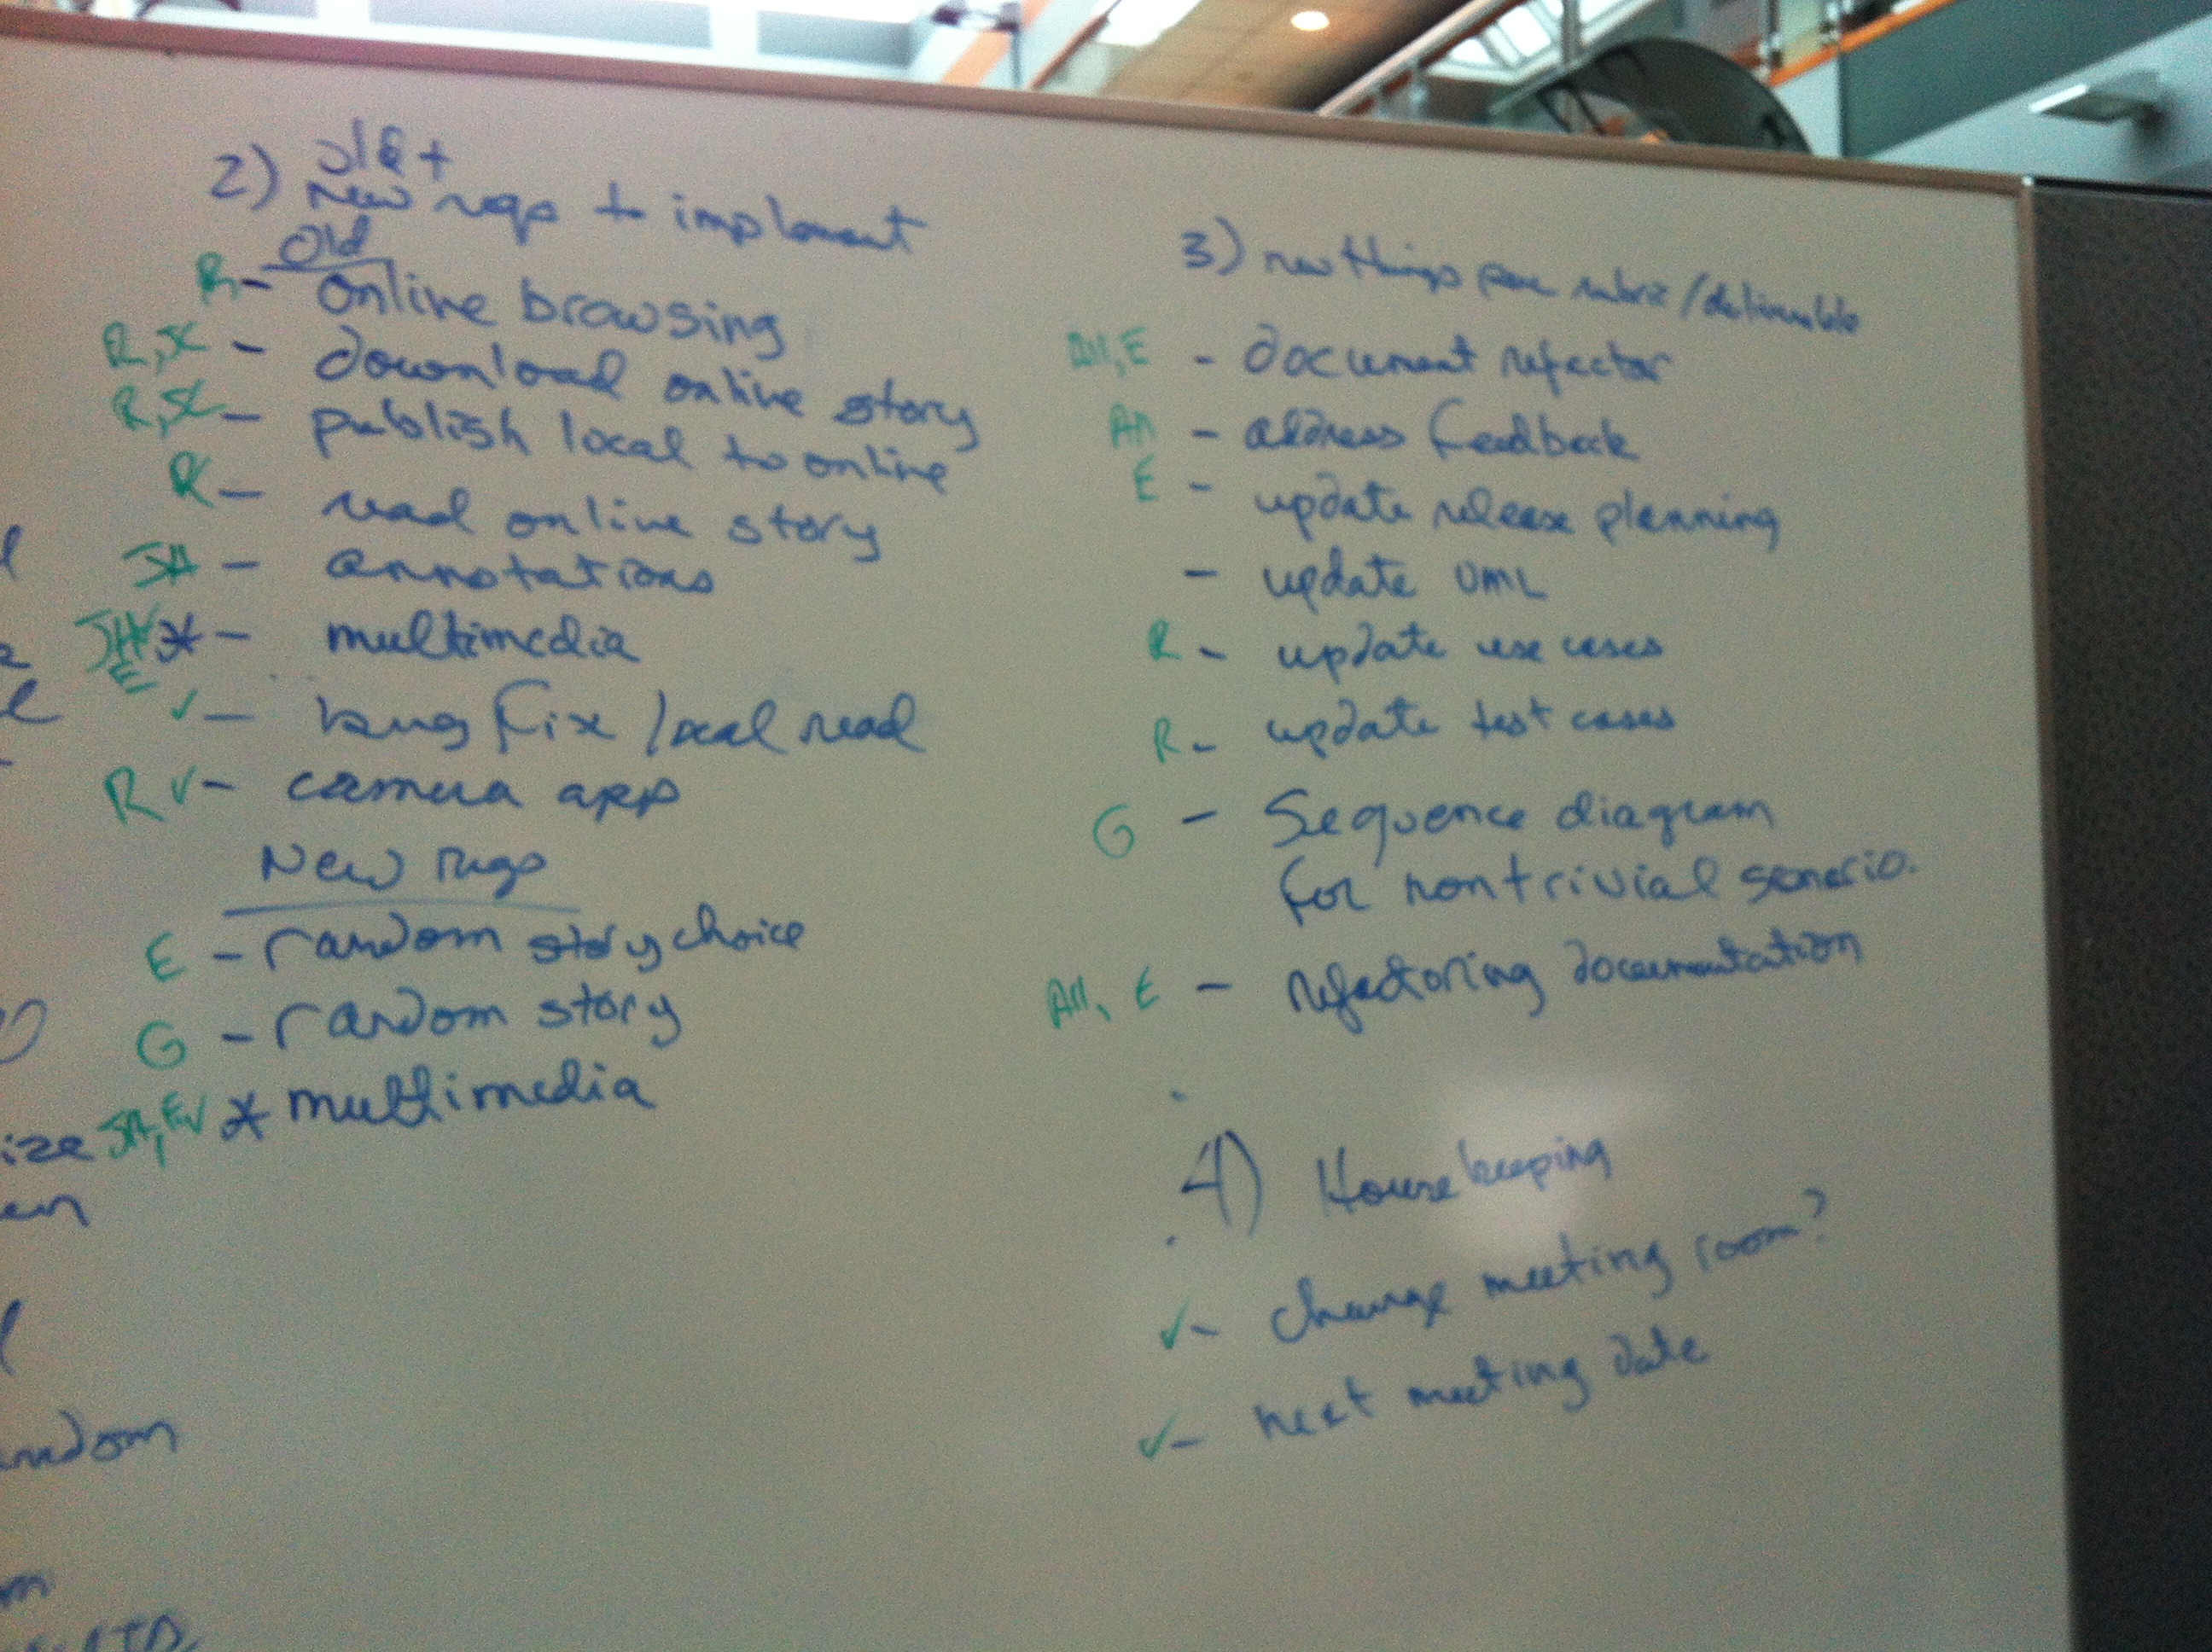 2) old +
new reqs to implement
Old
R - online browsing
R, SC - download online story
R, SC - publish local to online
R - read online story
JA - annotations
* - multimedia
E
✓ - bug fix local read
R ✓ - camera app
New reqs
E - random story choice
G - random story
JA, E ✓ * multimedia
3) new things per rubric / deliverable
All, E - document refactor
All - address feedback
E - update release planning
- update UML
R - update use cases
R - update test cases
G - Sequence diagram
for nontrivial scenerio.
All, E - refactoring documentation
4) House keeping
✓ - change meeting room?
✓ - next meeting date